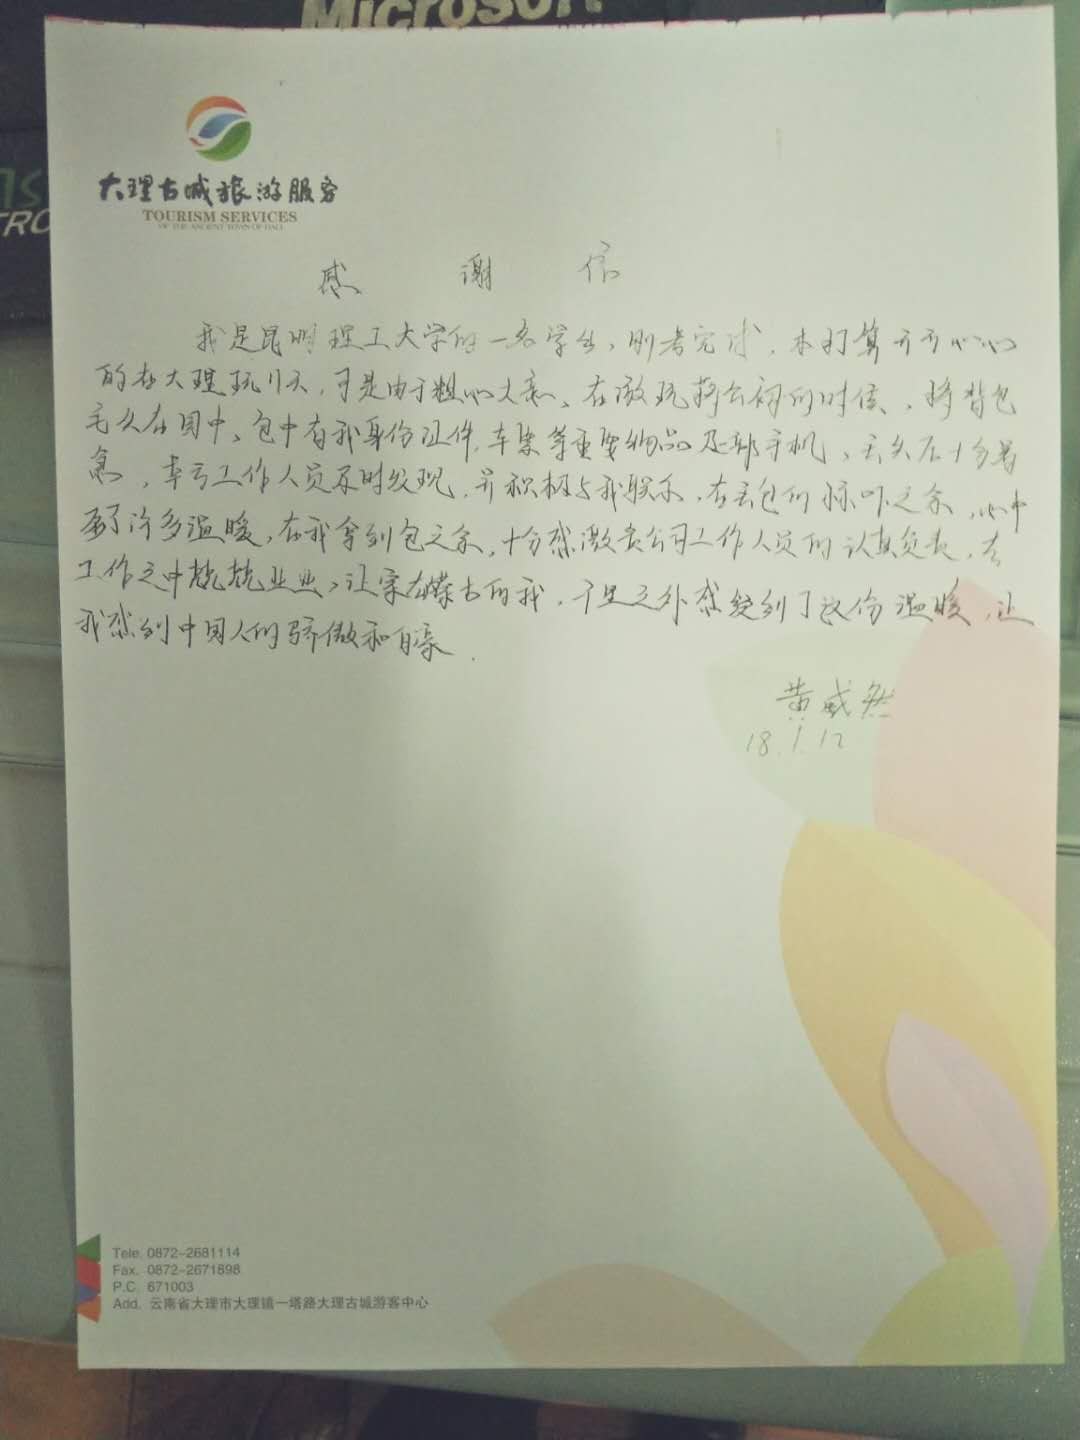 Microsoft
TRO
大理古城旅游服务
TOURISM SERVICES
OF THE ANCIENT TOWN OF DALI
感谢信
我是昆明理工大学的一名学生，刚考完试，本打算开开心心
的在大理玩几天，可是由于粗心大意，在游玩蒋公祠的时候，将背包
丢失在园中，包中有我身份证件，车票等重要物品及部手机，丢失后十分着
急，幸亏工作人员及时发现，并积极与我联系，在丢包的惊吓之余，心中
多了许多温暖，在我拿到包之余，十分感激贵公司工作人员的认真负责，在
工作之中兢兢业业，让家在蒙古的我，千里之外感受到了这份温暖，让
我感到中国人的骄傲和自豪.
黄威然
18.1.12
Tele. 0872-2681114
Fax. 0872-2671898
P.C. 671003
Add. 云南省大理市大理镇一塔路大理古城游客中心